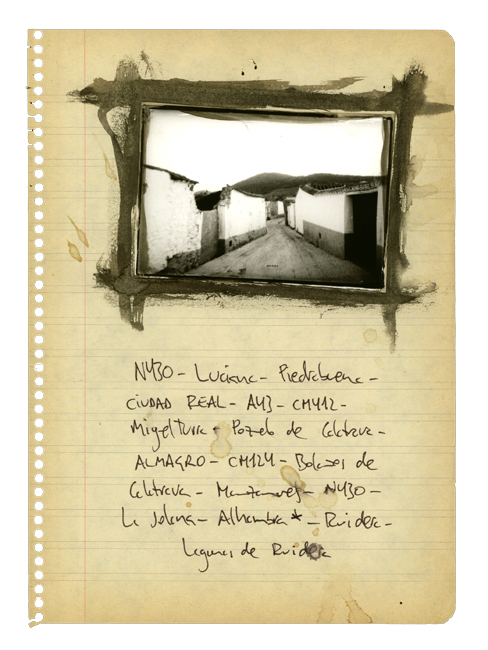 N430 - Luciana - Piedrabuena -
CIUDAD REAL - A43 - CM412 -
Miguelturra - Pozuelo de Calatrava -
ALMAGRO - CM124 - Bolaños de
Calatrava - Manzanares - N430 -
La Solana - Alhambra * - Ruidera -
Lagunas de Ruidera